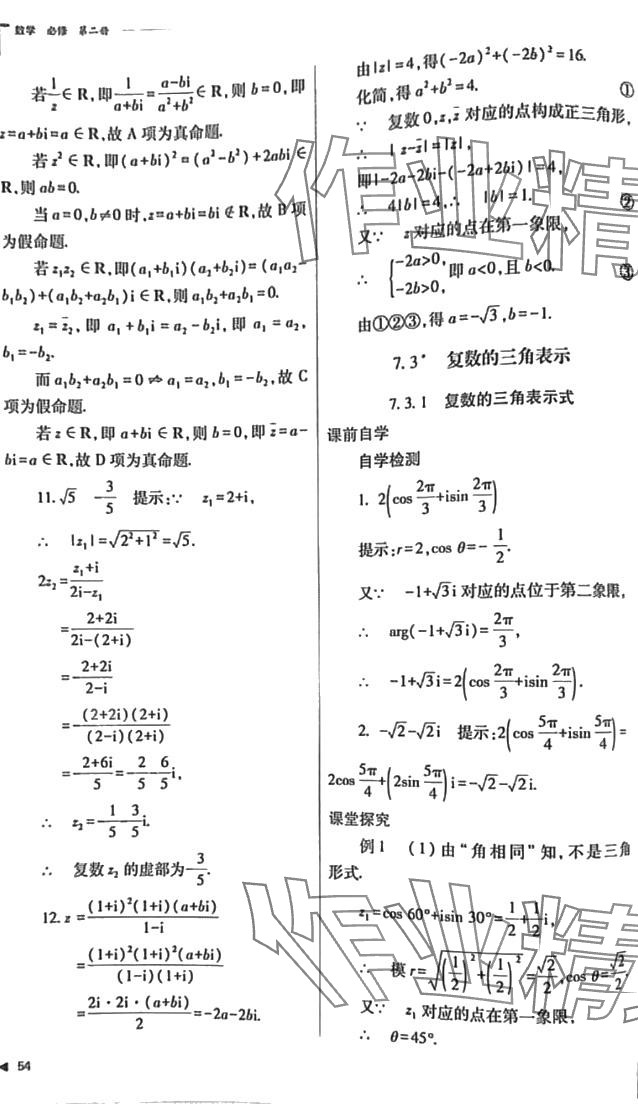 数学 必修 第二册
若1/z∈R,即1/(a+bi)=(a-bi)/(a²+b²)∈R,则b=0,即
z=a+bi=a∈R,故A项为真命题.
若z²∈R,即(a+bi)²=(a²-b²)+2abi∈
R,则ab=0.
当a=0,b≠0时,z=a+bi=bi∉R,故B项
为假命题.
若z₁z₂∈R,即(a₁+b₁i)(a₂+b₂i)=(a₁a₂-
b₁b₂)+(a₁b₂+a₂b₁)i∈R,则a₁b₂+a₂b₁=0.
z₁=z̄₂,即a₁+b₁i=a₂-b₂i,即a₁=a₂,
b₁=-b₂.
而a₁b₂+a₂b₁=0⇏a₁=a₂,b₁=-b₂,故C
项为假命题.
若z∈R,即a+bi∈R,则b=0,即z̄=a-
bi=a∈R,故D项为真命题.
11.√5 -3/5 提示:∵ z₁=2+i,
∴ |z₁|=√(2²+1²)=√5.
2z₂=(z₁+i)/(2i-z₁)
=(2+2i)/(2i-(2+i))
=-(2+2i)/(2-i)
=-(2+2i)(2+i)/(2-i)(2+i)
=-(2+6i)/5=-2/5-6/5i,
∴ z₂=-1/5-3/5i.
∴ 复数z₂的虚部为-3/5.
12.z=(1+i)²(1+i)(a+bi)/(1-i)
=(1+i)²(1+i)²(a+bi)/(1-i)(1+i)
=2i·2i·(a+bi)/2=-2a-2bi.
54
由|z|=4,得(-2a)²+(-2b)²=16.
化简,得a²+b²=4. ①
∵ 复数0,z,z̄对应的点构成正三角形,
∴ |z-z̄|=|z|,
即|-2a-2bi-(-2a+2bi)|=4,
∴ 4|b|=4,∴ |b|=1. ②
又∵ z对应的点在第一象限,
∴ {-2a>0, -2b>0, 即a<0,且b<0. ③
由①②③,得a=-√3,b=-1.
7.3* 复数的三角表示
7.3.1 复数的三角表示式
课前自学
自学检测
1. 2(cos 2π/3+isin 2π/3)
提示:r=2,cos θ=-1/2.
又∵ -1+√3i对应的点位于第二象限,
∴ arg(-1+√3i)=2π/3,
∴ -1+√3i=2(cos 2π/3+isin 2π/3).
2. -√2-√2i 提示:2(cos 5π/4+isin 5π/4)=
2cos 5π/4+(2sin 5π/4)i=-√2-√2i.
课堂探究
例1 (1)由“角相同”知,不是三角
形式.
z₁=cos 60°+isin 30°=1/2+1/2i,
∴ 模r=√((1/2)²+(1/2)²)=√2/2,cos θ=√2/2.
又∵ z₁对应的点在第一象限,
∴ θ=45°.
作业精
作业精